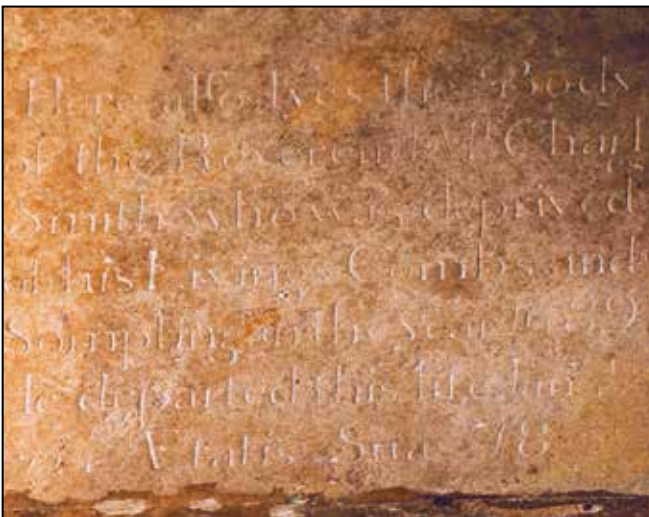 Here allso Lyes the Body
of the Reverend Mr Charls
Smith who was deprived
of his Living Combs and
Sompting in the Year 1689
He departed this life
Ætatis Suæ 78